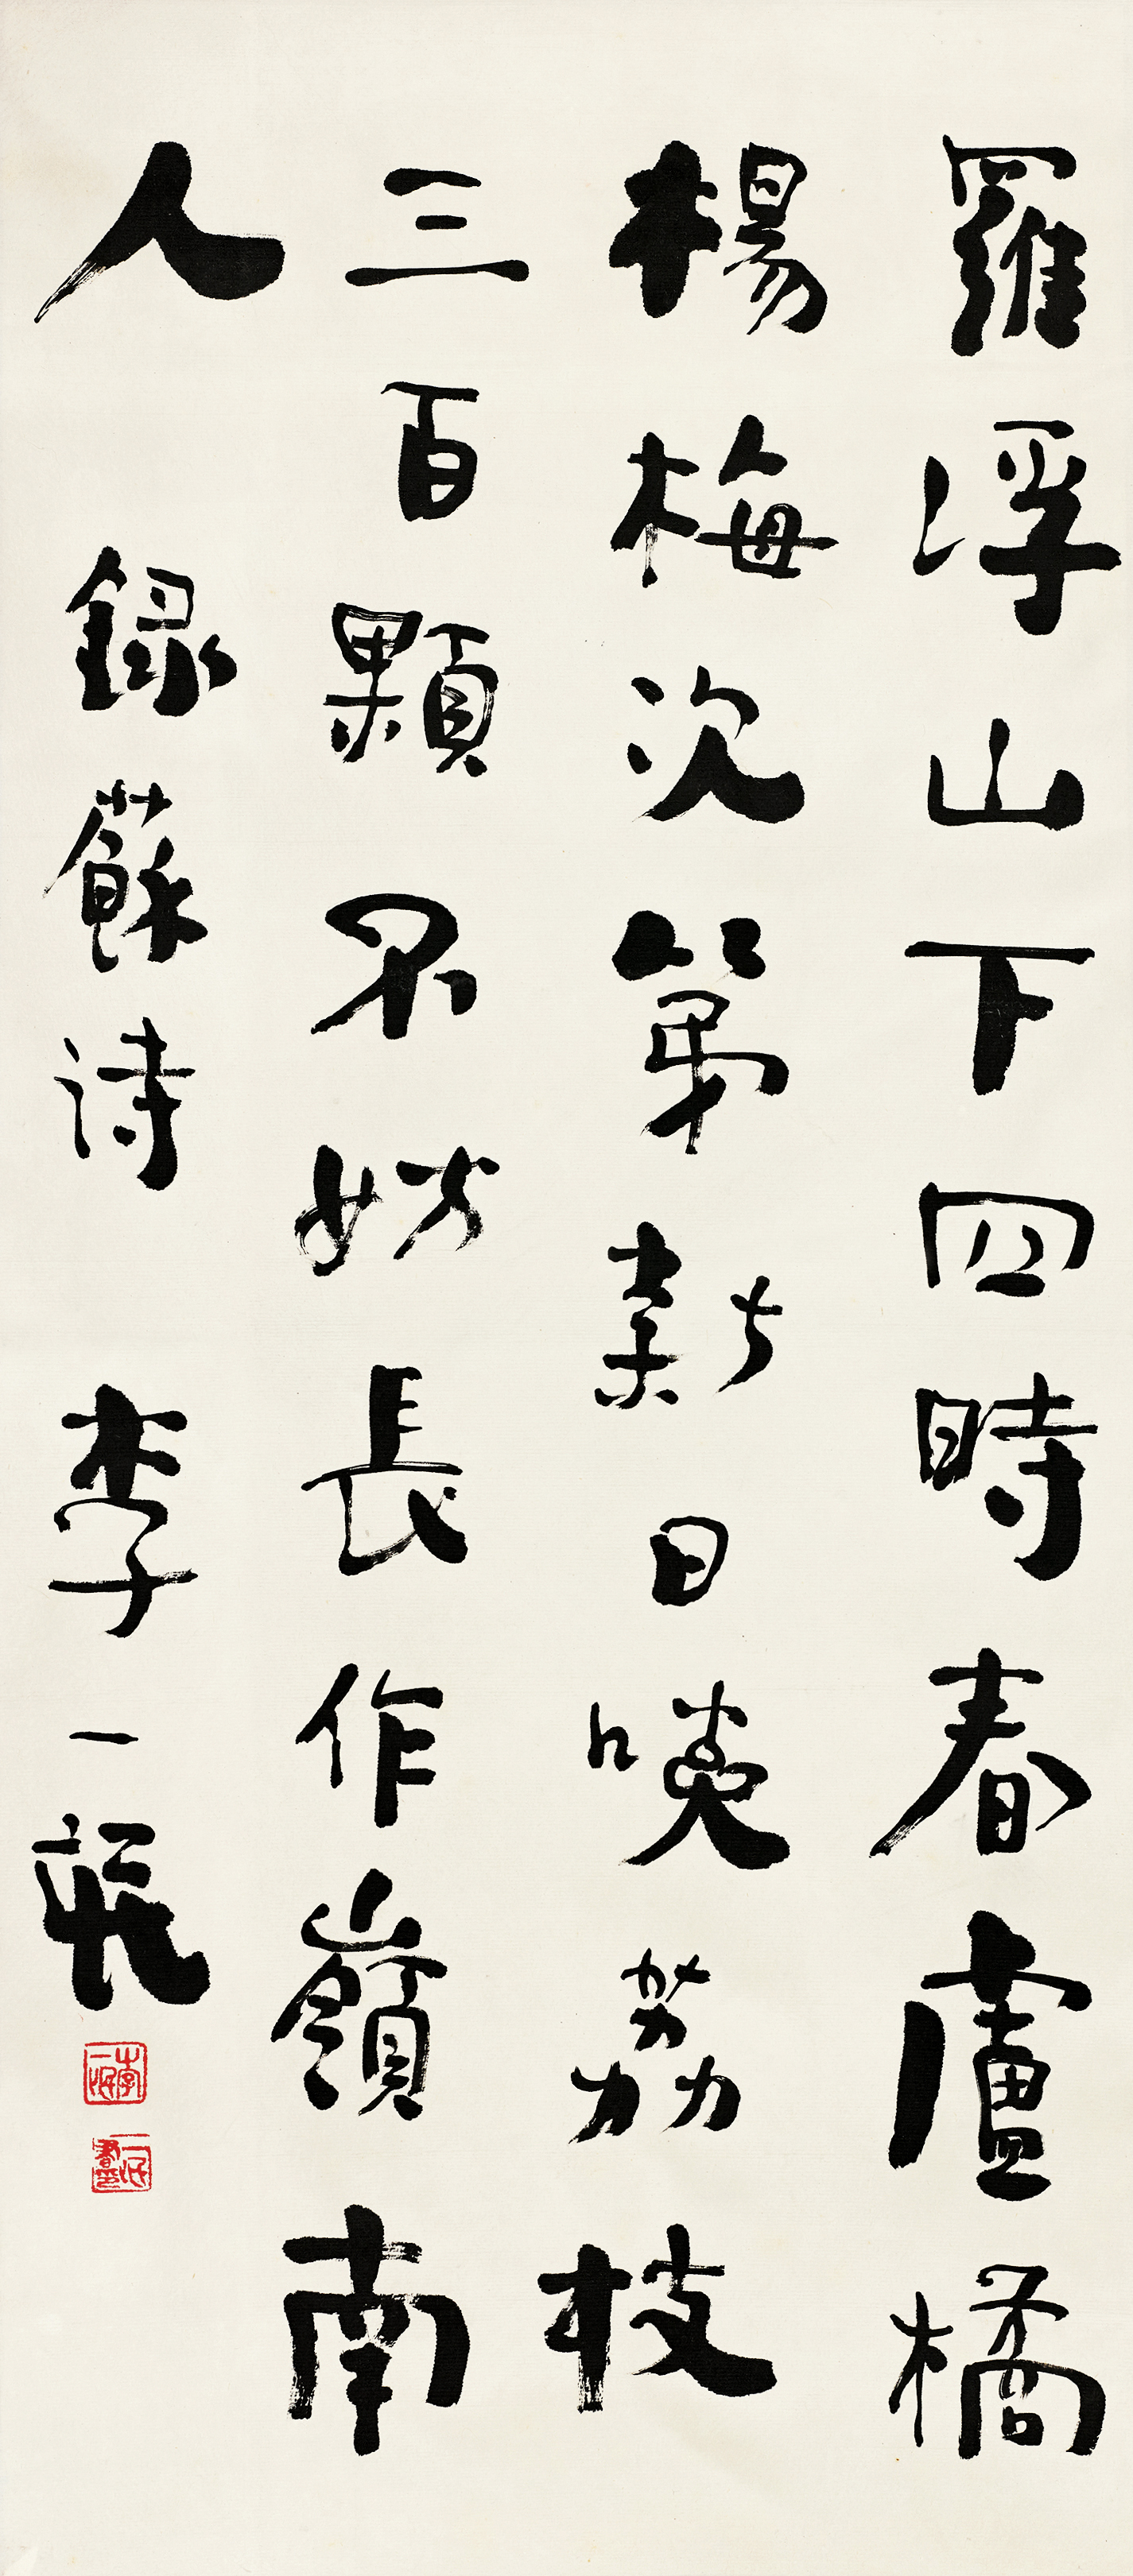 羅浮山下四時春盧橘
楊梅次第新日啖荔枝
三百顆不妨長作嶺南
人 錄蘇詩 李一氓
李一氓
一氓書畫